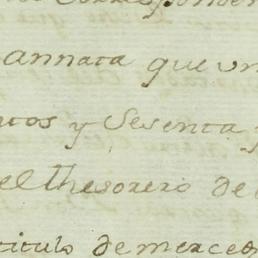 correspondien
annata que un
tos y sesenta y
el thesorero de
titulo de merced